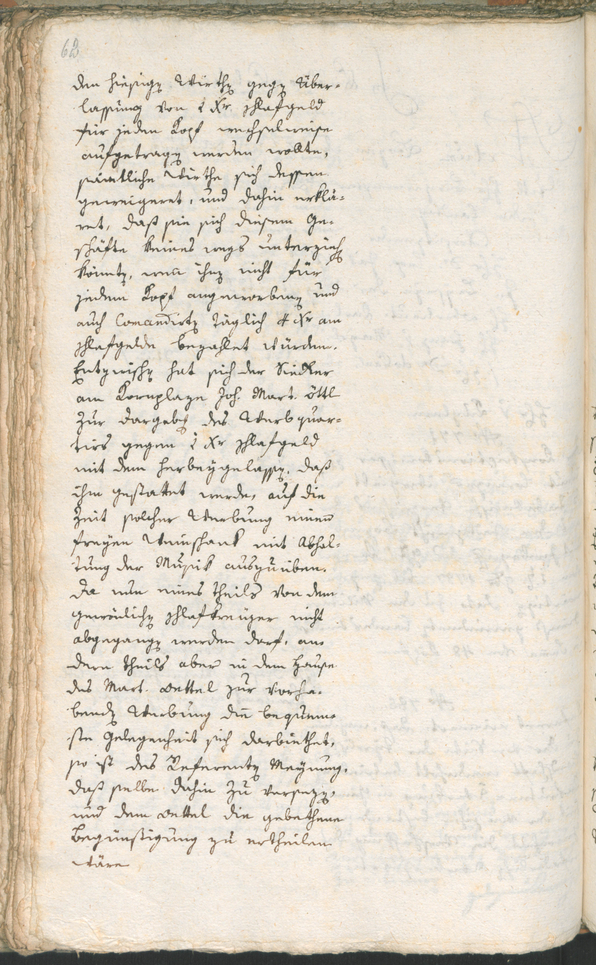 62
den hiesigen Wirthen gegen Über-
lassung von 2 Xr schlafgeld
für jeden Kopf wechselweise
aufgetragen werden wollte,
sämtliche Wirthe sich dessen
geweigeret, und dahin erklä-
ret, daß sie sich diesem Ge-
schäfte keines wegs unterziehen
könnten, wenn ihnen nicht für
jedem Kopf angeworbenen und
auch Comandirten täglich 4 Xr am
schlafgelde bezahlet würden.
Entzwischen hat sich der Sieder
am Kornplaze Joh. Mart. Öttl
zur dargebung des Werbquar-
tirs gegen 2 Xr schlafgeld
mit dem herbeygelassen, daß
ihm gestattet werde, auf die
Zeit solcher Werbung einen
freyen Weinschank mit Abhal-
tung der Musik auszuüben.
Da nun eines theils von dem
gewönlichen schlafkreuzer nicht
abgegangen werden darf, an-
dern theils aber in dem Hause
des Mart. Oettel zur vorha-
benden Werbung die bequem-
ste Gelegenheit sich darbiethet,
so ist des Referenten Meynung,
daß selbe dahin zu versezen,
und dem Oettel die gebethene
Begünstigung zu ertheilen
wäre